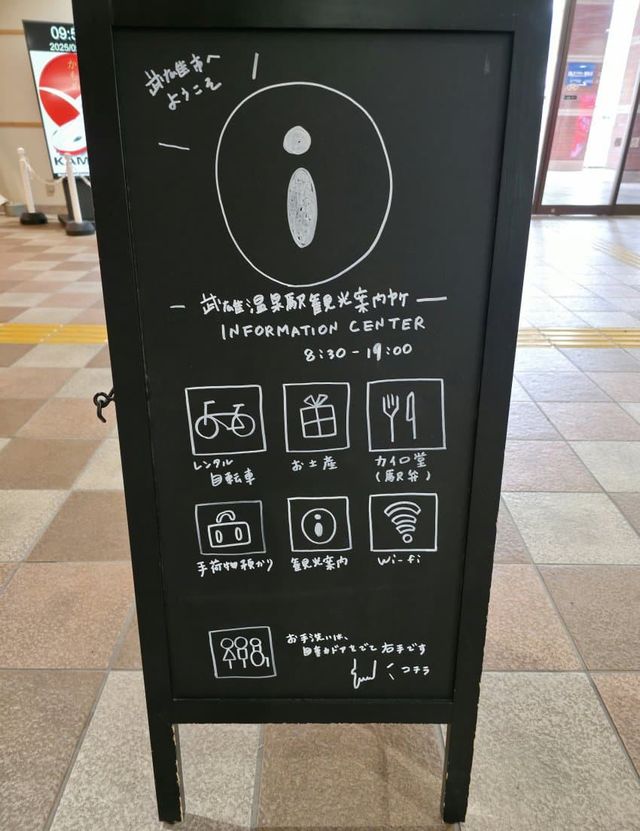 09:5
2025/0
KAM
武雄市へ
ようこそ
武雄温泉駅観光案内所
INFORMATION CENTER
8:30-19:00
レンタル
自転車
お土産
カイロ堂
(駅弁)
手荷物預かり
観光案内
Wi-fi
お手洗いは、
自動ドアをでて右手です
コチラ